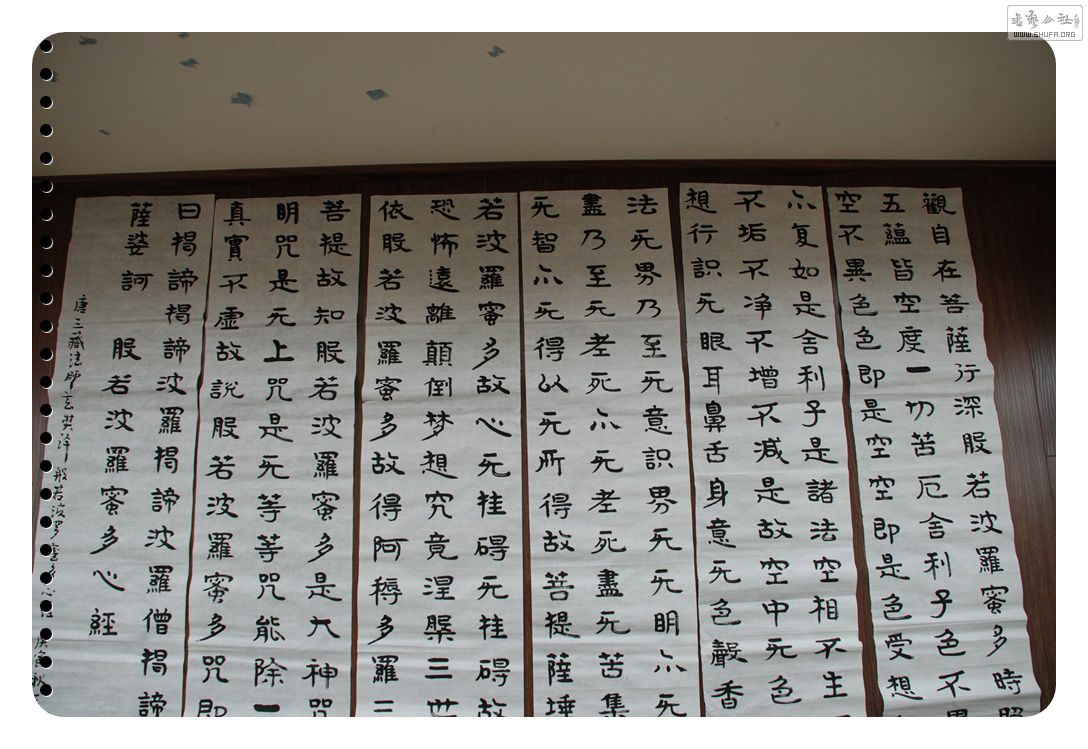 觀自在菩薩行深般若波羅蜜多時照
五蘊皆空度一切苦厄舍利子色不異
空不異色色即是空空即是色受想
亦复如是舍利子是諸法空相不生
不垢不净不增不減是故空中无色
想行識无眼耳鼻舌身意无色聲香
法无界乃至无意識界无无明亦无
盡乃至无老死亦无老死盡无苦集
无智亦无得以无所得故菩提薩埵
若波羅蜜多故心无挂碍无挂碍故
恐怖遠離顛倒梦想究竟涅槃三世
依般若波羅蜜多故得阿耨多羅三
菩提故知般若波羅蜜多是大神咒
明咒是无上咒是无等等咒能除一
真實不虚故說般若波羅蜜多咒即
曰揭諦揭諦波羅揭諦波羅僧揭諦
薩婆訶 般若波羅蜜多心經
唐三藏法師玄奘译 般若波罗蜜多心经 庚寅秋
书艺公社
WWW.SHUFA.ORG